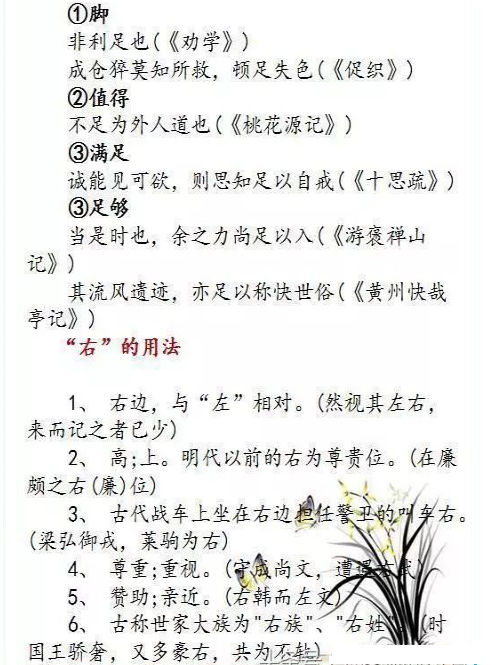 ①脚
非利足也(《劝学》)
成仓猝莫知所救，顿足失色(《促织》)
②值得
不足为外人道也(《桃花源记》)
③满足
诚能见可欲，则思知足以自戒(《十思疏》)
③足够
当是时也，余之力尚足以入(《游褒禅山
记》)
其流风遗迹，亦足以称快世俗(《黄州快哉
亭记》)
“右”的用法
1、 右边，与“左”相对。(然视其左右，
来而记之者已少)
2、 高;上。明代以前的右为尊贵位。(在廉
颇之右(廉)位)
3、 古代战车上坐在右边担任警卫的叫车右。
(梁弘御戎，莱驹为右)
4、 尊重;重视。(守成尚文，遭遇右武)
5、 赞助;亲近。(右韩而左文)
6、 古称世家大族为"右族"、"右姓"。(时
国王骄奢，又多豪右，共为不轨)